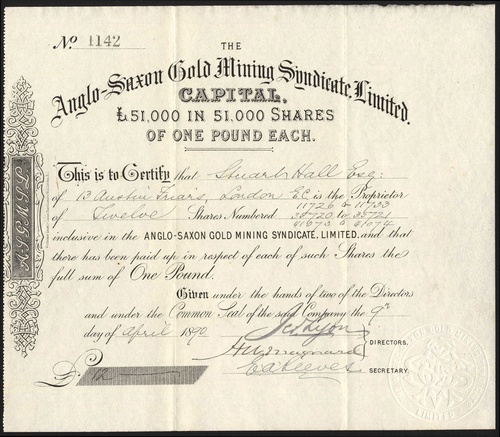 No 1142
THE
Anglo-Saxon Gold Mining Syndicate, Limited.
CAPITAL,
£51,000 IN 51,000 SHARES
OF ONE POUND EACH.
This is to Certify that Stuart Hall Esq:
of 13 Austin Friars, London E.C. is the Proprietor
11726 to 11733
of Twelve Shares Numbered 38720 to 38721
inclusive in the ANGLO-SAXON GOLD MINING SYNDICATE, LIMITED, and that
there has been paid up in respect of each of such Shares the
full sum of One Pound.
Given under the hands of two of the Directors
and under the Common Seal of the said Company the 9th
day of April 1890
DIRECTORS.
£ 12
SECRETARY
A.S.G.M.S.L.
LIMITED